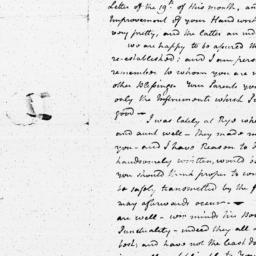 Letter of the 19th of this month, an
Improvement of your Hand writ
very pretty, and the latter an in
we are happy to be assured th
re-established; and I am pers
remember to whom you are
other Blessings. Your Parents
only the Instruments which
good —
— I was lately at Rye wh
and aunt well — They
you — and I have Reason to
handsomely written, would
you should think proper to
be safely transmitted by the
may afterwards occur —
are well — minds his
Punctuality — indeed they all
and have not the least